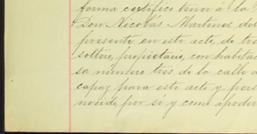 forma certifico tuvo á la
Don Nicolás Martinez del
presente en este acto, de tre
soltero, propietario, con habita
se número tres de la calle d
capaz para este acto y pers
nocido por si y como apoder